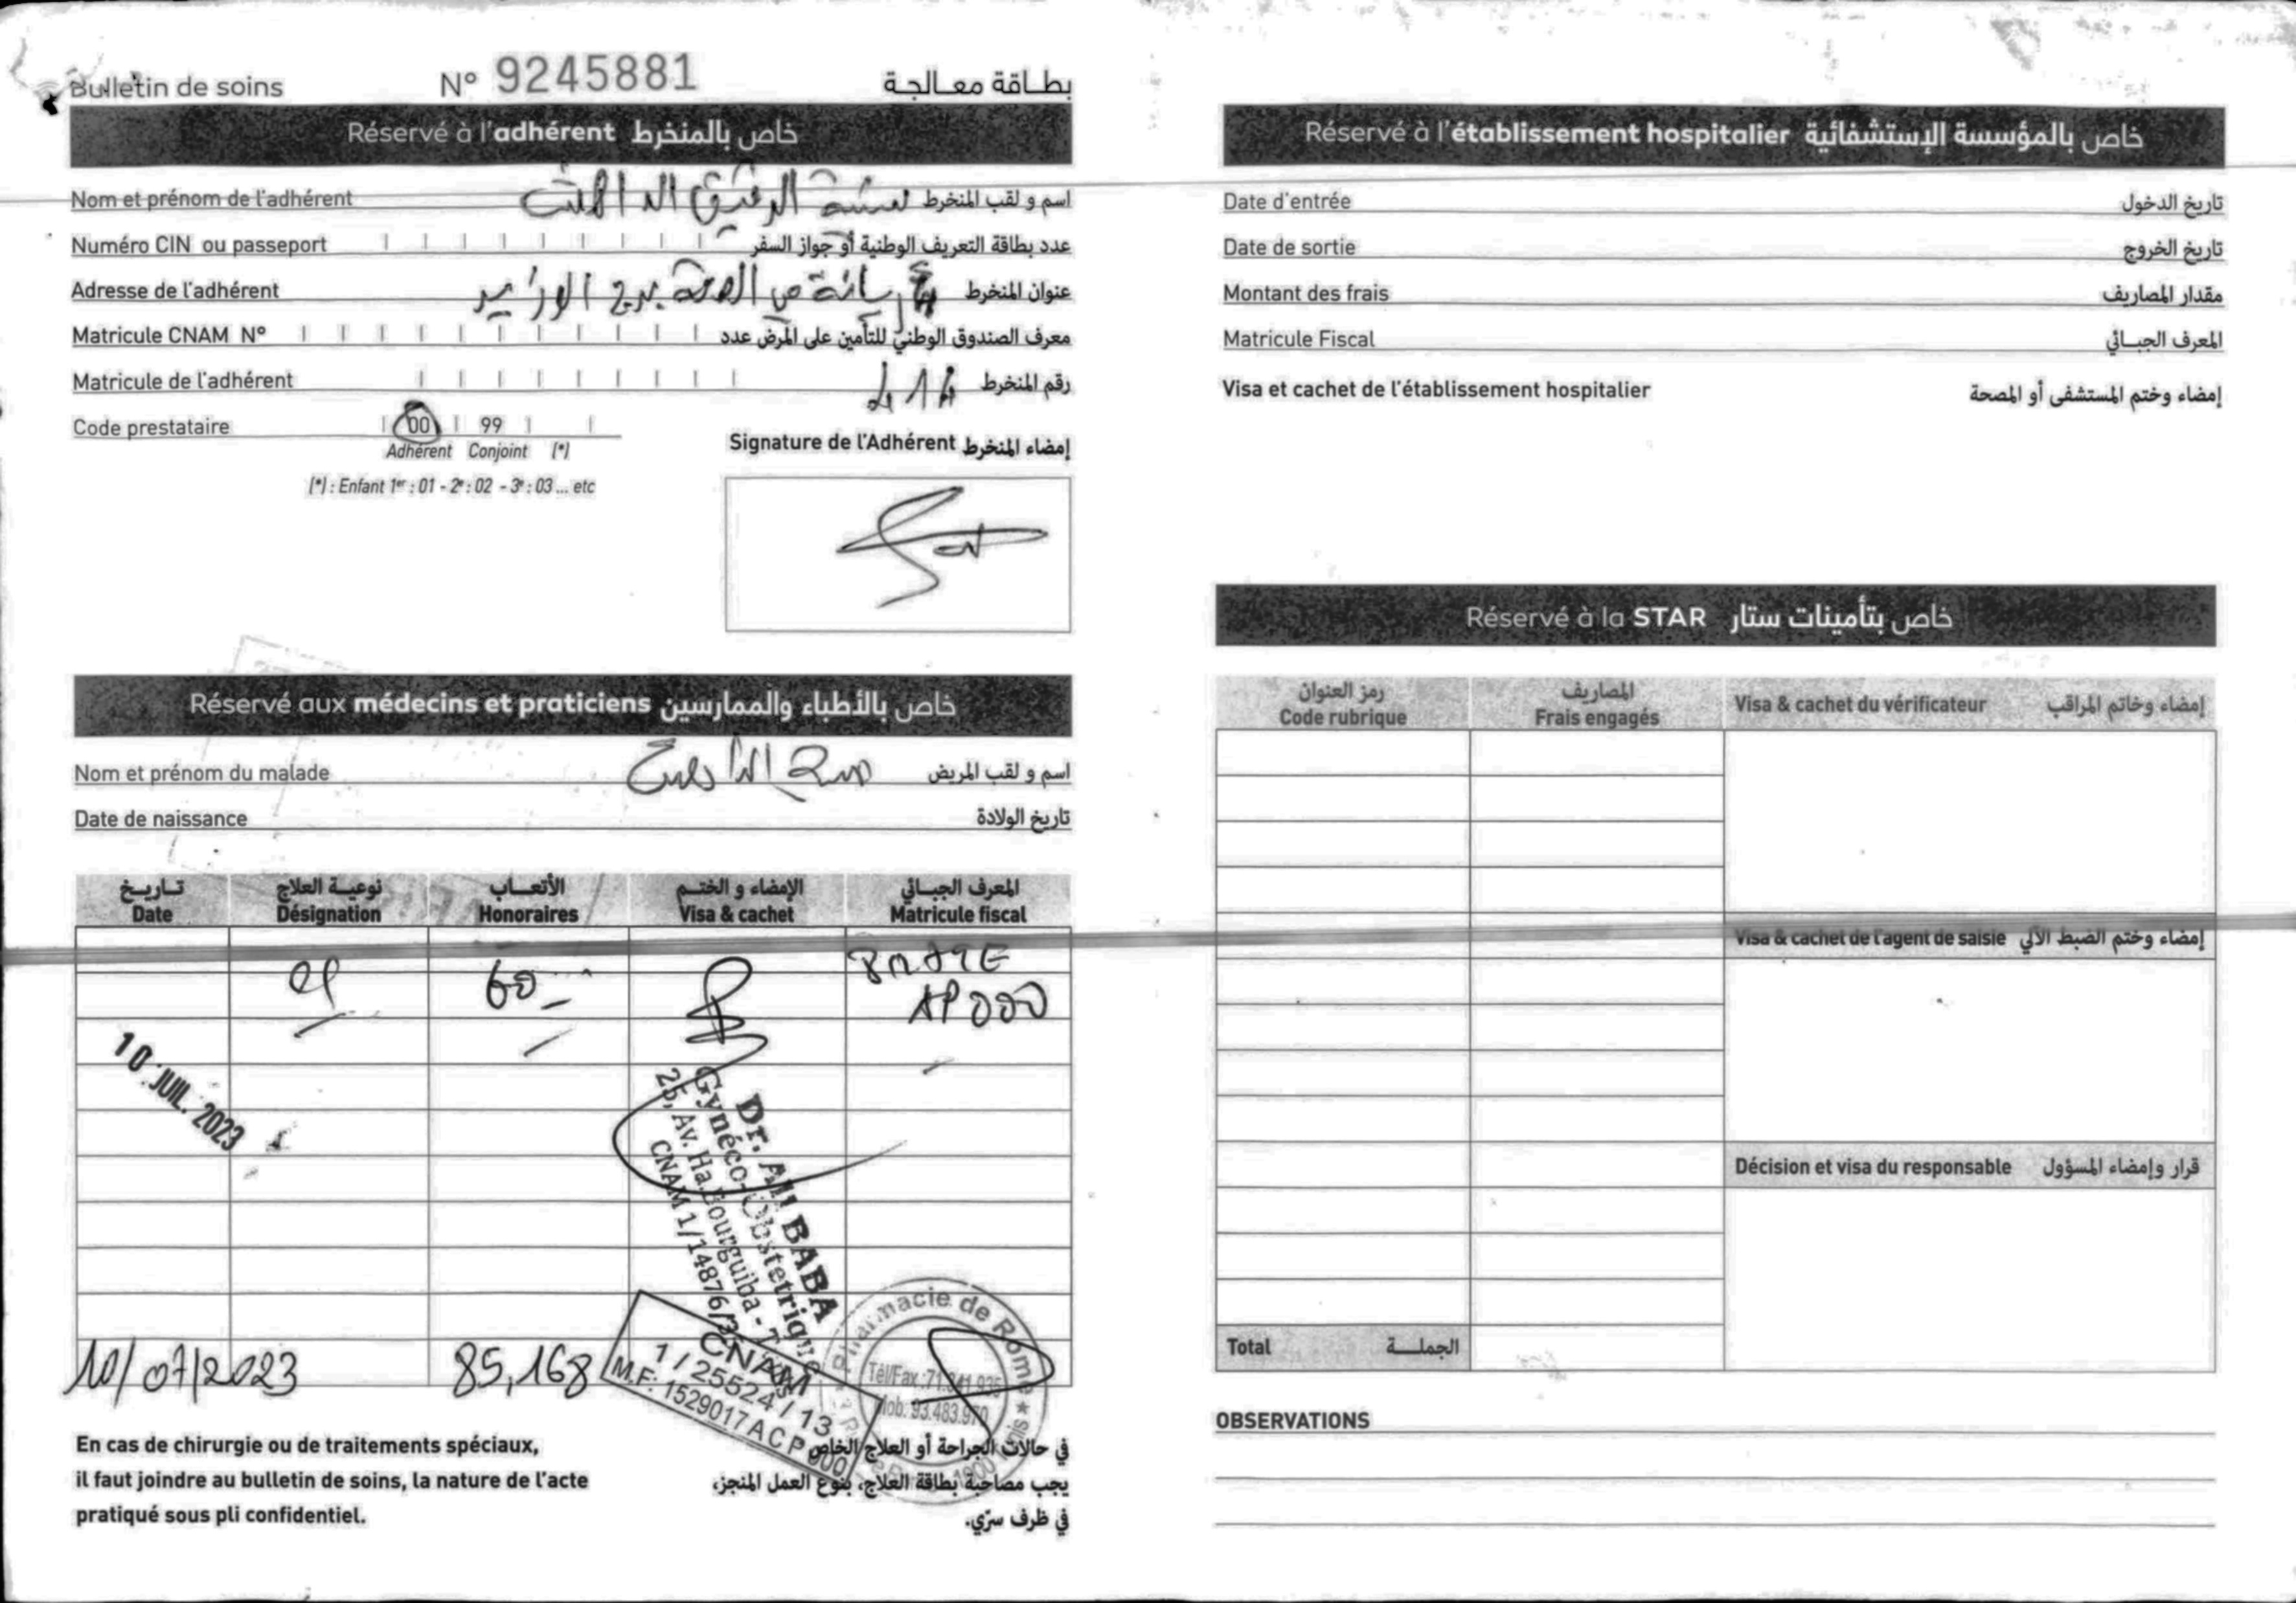 Bulletin de soins N° 9245881 بطاقة معالجة
Réservé à l'adhérent خاص بالمنخرط
Nom et prénom de l'adhérent اسم و لقب المنخرط
Numéro CIN ou passeport عدد بطاقة التعريف الوطنية أو جواز السفر
Adresse de l'adhérent عنوان المنخرط
Matricule CNAM N° معرف الصندوق الوطني للتأمين على المرض عدد
Matricule de l'adhérent رقم المنخرط
Code prestataire 00 99
Adhérent Conjoint (*)
(*) : Enfant 1er : 01 - 2e : 02 - 3e : 03 ... etc
Signature de l'Adhérent إمضاء المنخرط
Réservé aux médecins et praticiens خاص بالأطباء والممارسين
Nom et prénom du malade اسم و لقب المريض
Date de naissance تاريخ الولادة
تاريخ نوعية العلاج الأتعاب الإمضاء و الختم المعرف الجبائي
Date Désignation Honoraires Visa & cachet Matricule fiscal
60
AP000
10 JUIL. 2023
Dr. Ali BABA
Gynéco-Obstetrique
25, Av. Ha. Bourguiba -
CNAM 1/14876/
10/07/2023 85,168
CNAM
1 / 25524 / 13
M.F: 1529017 A C P 000
Pharmacie de Rome
Tél/Fax :71.341.935
Mob: 93.483.970
En cas de chirurgie ou de traitements spéciaux,
il faut joindre au bulletin de soins, la nature de l'acte
pratiqué sous pli confidentiel.
في حالات الجراحة أو العلاج الخاص
يجب مصاحبة بطاقة العلاج، بنوع العمل المنجز،
في ظرف سرّي.
Réservé à l'établissement hospitalier خاص بالمؤسسة الإستشفائية
Date d'entrée تاريخ الدخول
Date de sortie تاريخ الخروج
Montant des frais مقدار المصاريف
Matricule Fiscal المعرف الجبائي
Visa et cachet de l'établissement hospitalier إمضاء وختم المستشفى أو المصحة
Réservé à la STAR خاص بتأمينات ستار
رمز العنوان المصاريف
Code rubrique Frais engagés Visa & cachet du vérificateur إمضاء وخاتم المراقب
Visa & cachet de l'agent de saisie إمضاء وختم الضبط الآلي
Décision et visa du responsable قرار وإمضاء المسؤول
Total الجملة
OBSERVATIONS